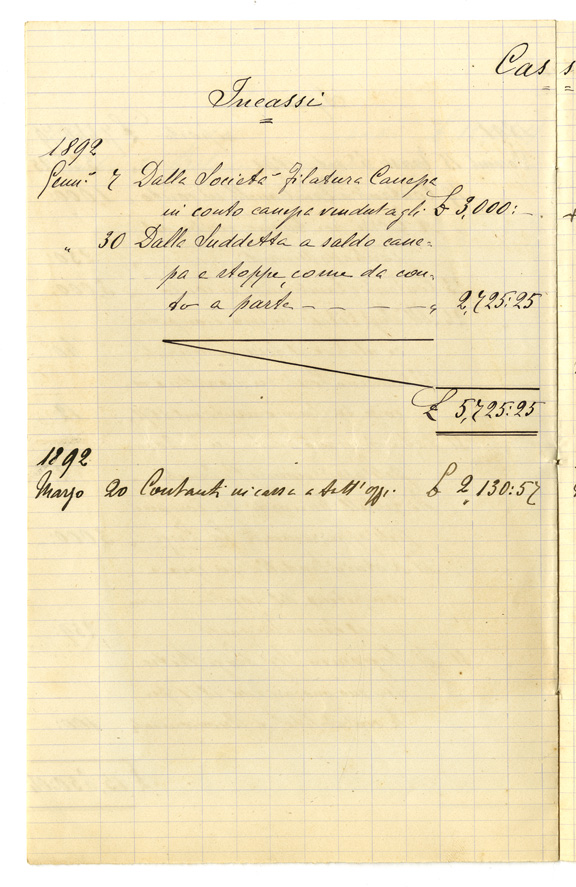 Cas s
Incassi
1892
Genn.° 7 Dalla Società Filatura Canepa
in conto canepa vendutagli £ 3,000:-
" 30 Dalla Suddetta a saldo cane=
pa e stoppe, come da con=
to a parte - - - - " 2,725:25
£ 5,725:25
1892
Marzo 20 Contanti in cassa a tutt'oggi. £ 2,130:57